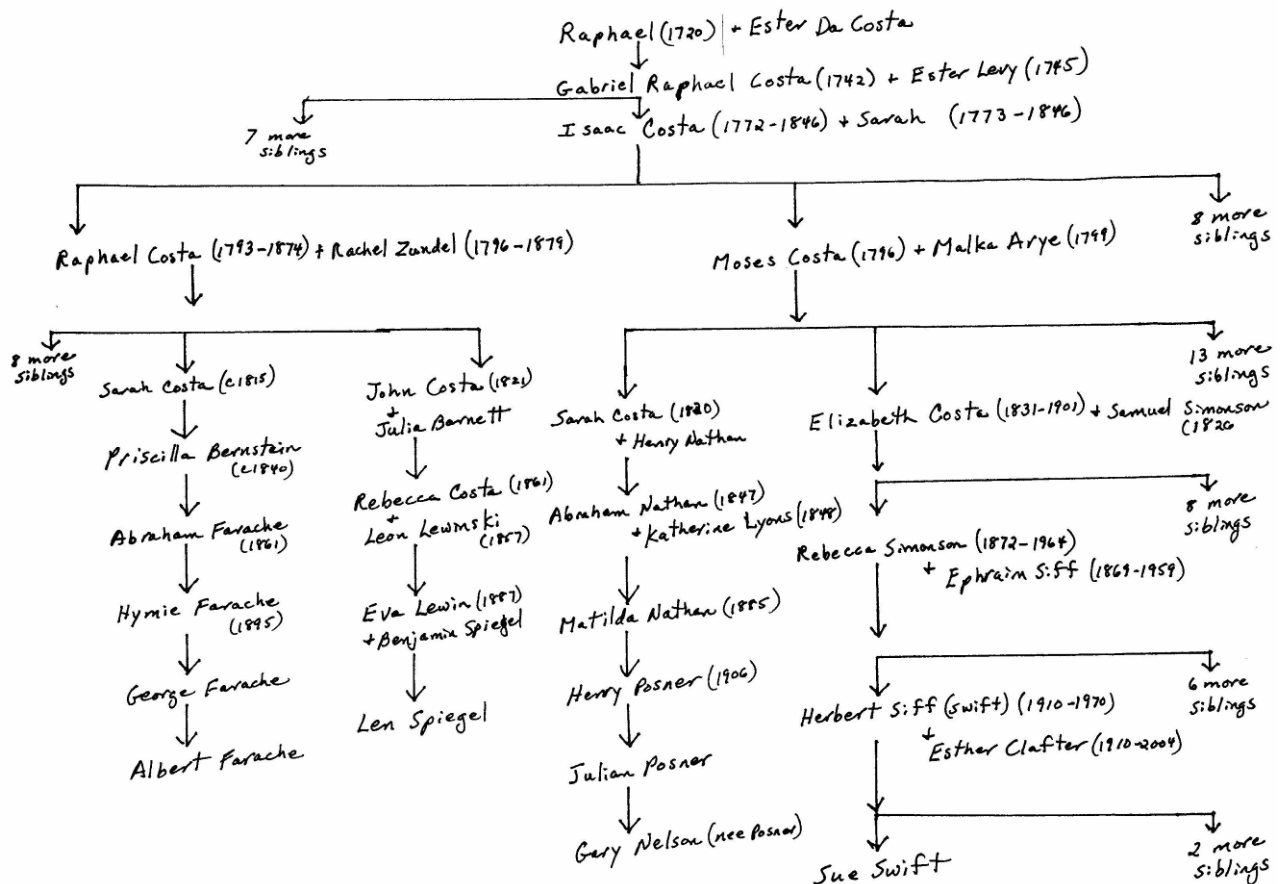 Raphael (1720) + Ester Da Costa
Gabriel Raphael Costa (1742) + Ester Levy (1745)
7 more
siblings
Isaac Costa (1772-1846) + Sarah (1773-1846)
Raphael Costa (1793-1874) + Rachel Zundel (1796-1879)
Moses Costa (1796) + Malka Arye (1799)
8 more
siblings
8 more
siblings
Sarah Costa (c1815)
Priscilla Bernstein
(c1840)
Abraham Farache
(1861)
Hymie Farache
(1895)
George Farache
Albert Farache
John Costa (1821)
+
Julia Barnett
Rebecca Costa (1861)
+
Leon Lewinski
(1857)
Eva Lewin (1887)
+ Benjamin Spiegel
Len Spiegel
Sarah Costa (1820)
+ Henry Nathan
Abraham Nathan (1847)
+ Katherine Lyons (1848)
Matilda Nathan (1885)
Henry Posner (1906)
Julian Posner
Gary Nelson (nee Posner)
Elizabeth Costa (1831-1901) + Samuel Simonson
(1826
13 more
siblings
Rebecca Simonson (1872-1964)
+ Ephraim Siff (1869-1959)
8 more
siblings
Herbert Siff (Swift) (1910-1970)
+
Esther Clafter (1910-2004)
6 more
siblings
Sue Swift
2 more
siblings